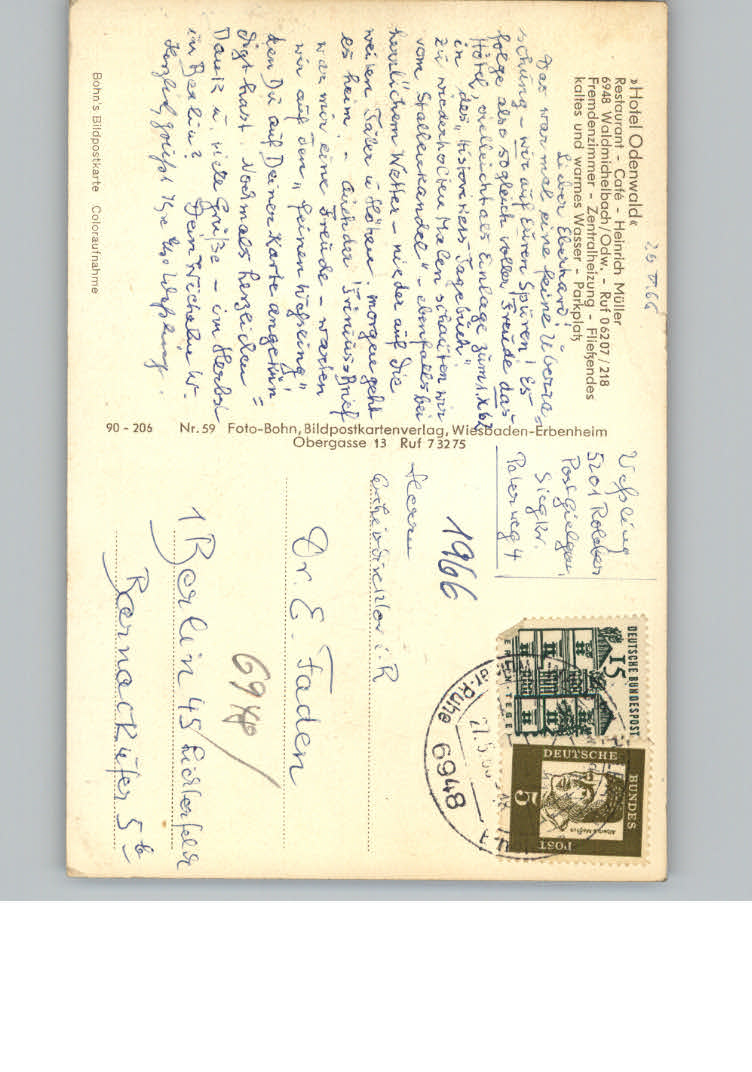 »Hotel Odenwald«
Restaurant - Café - Heinrich Müller
6948 Waldmichelbach/Odw. - Ruf 06207/218
Fremdenzimmer - Zentralheizung - Fließendes
kaltes und warmes Wasser - Parkplatz
Lieber Eberhard!
Das war mal eine feine Überra=
schung - wir auf Euren Spuren! Es
folge also sogleich voller Freude das
Hôtel, vielleicht als Einlage zum
in des „Historikers Tagebuch".
Zu wiederholten Malen schauten wir
vom - ebenfalls bei
herrlichem Wetter - nieder auf die
weiten Täler u Höhen. Morgen geht
es heim. - Auch der Trinius-Brief
war mir eine Freude - warten
wir auf den „feinen Weßling"
den Du auf Deiner Karte angekün
digt hast. Nochmals herzlichen =
Dank u. viele Grüße - im Herbst
in Berlin? Dein W-
herzlich grüßt
Bohn's Bildpostkarte Coloraufnahme
90 - 206 Nr. 59 Foto-Bohn, Bildpostkartenverlag, Wiesbaden-Erbenheim
Obergasse 13 Ruf 73275
Weßling
5201
Post
Siegkr.
4
1966
Herrn
i. R
Dr. E. Faden
1 Berlin 45 Lichterfelde
5
DEUTSCHE BUNDESPOST
15
BERLIN-TEGEL
DEUTSCHE
BUNDES
POST
5
Albertus Magnus
6948